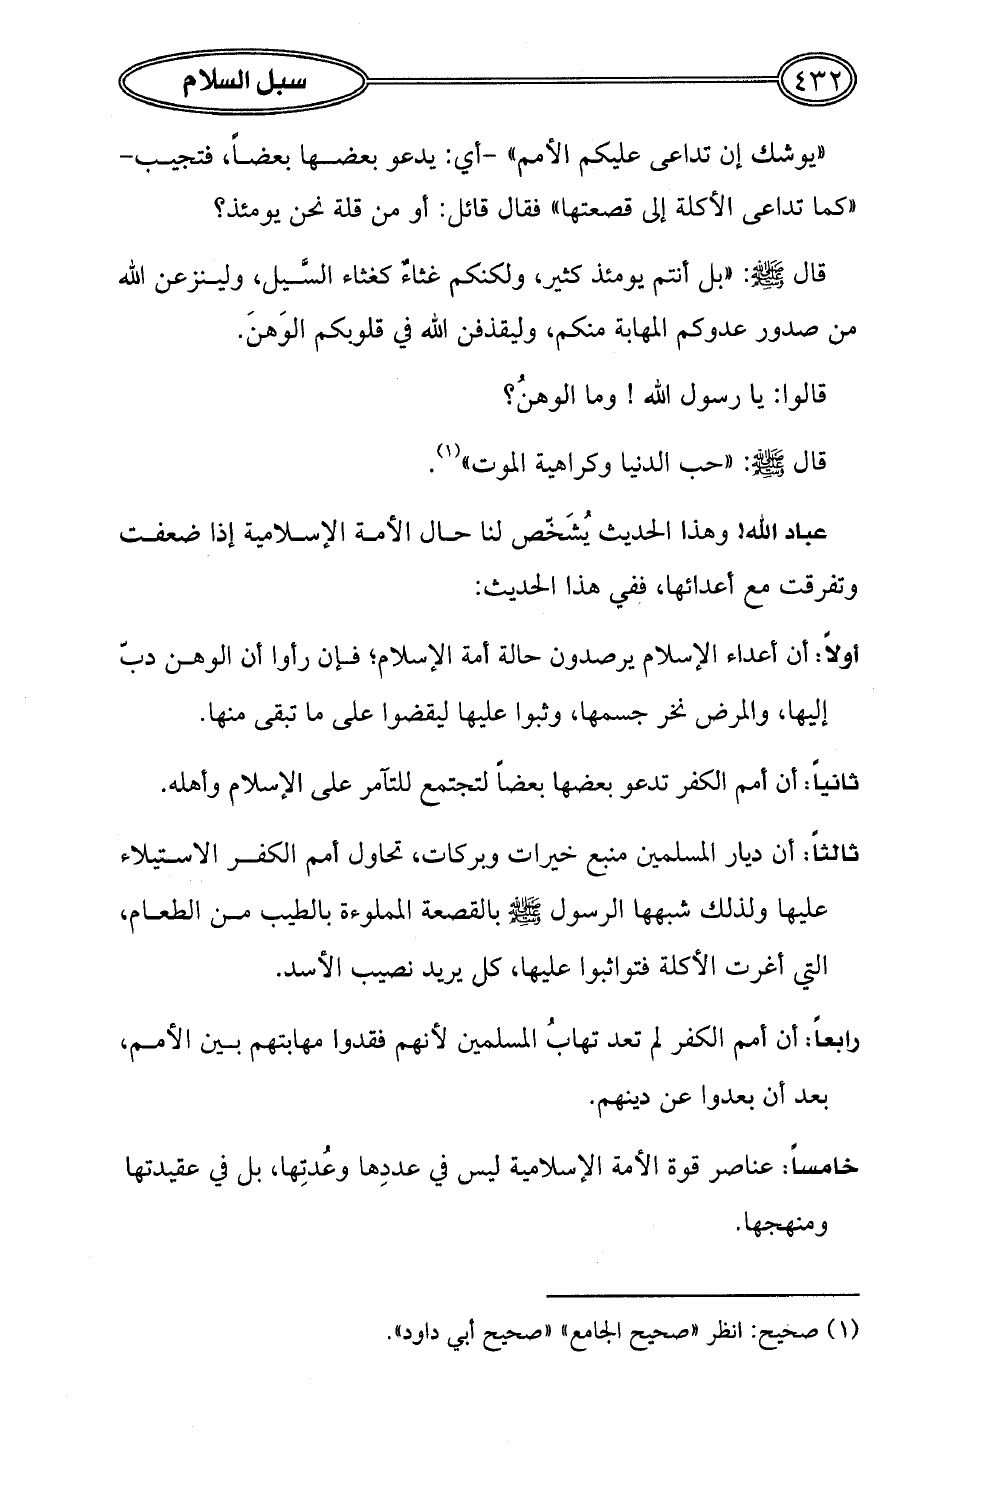 ٤٣٢
سبل السلام
«يوشك إن تداعى عليكم الأمم» -أي: يدعو بعضها بعضاً، فتجيب-
«كما تداعى الأكلة إلى قصعتها» فقال قائل: أو من قلة نحن يومئذ؟
قال ﷺ: «بل أنتم يومئذ كثير، ولكنكم غثاءٌ كغثاء السَّيل، ولينزعن الله
من صدور عدوكم المهابة منكم، وليقذفن الله في قلوبكم الوَهنَ.
قالوا: يا رسول الله ! وما الوهنُ؟
قال ﷺ: «حب الدنيا وكراهية الموت»(١).
عباد الله! وهذا الحديث يُشَخّص لنا حال الأمة الإسلامية إذا ضعفت
وتفرقت مع أعدائها، ففي هذا الحديث:
أولاً: أن أعداء الإسلام يرصدون حالة أمة الإسلام؛ فإن رأوا أن الوهن دبّ
إليها، والمرض نخر جسمها، وثبوا عليها ليقضوا على ما تبقى منها.
ثانياً: أن أمم الكفر تدعو بعضها بعضاً لتجتمع للتآمر على الإسلام وأهله.
ثالثاً: أن ديار المسلمين منبع خيرات وبركات، تحاول أمم الكفر الاستيلاء
عليها ولذلك شبهها الرسول ﷺ بالقصعة المملوءة بالطيب من الطعام،
التي أغرت الأكلة فتواثبوا عليها، كل يريد نصيب الأسد.
رابعاً: أن أمم الكفر لم تعد تهابُ المسلمين لأنهم فقدوا مهابتهم بين الأمم،
بعد أن بعدوا عن دينهم.
خامساً: عناصر قوة الأمة الإسلامية ليس في عددِها وعُدتِها، بل في عقيدتها
ومنهجها.
(١) صحيح: انظر «صحيح الجامع» «صحيح أبي داود».